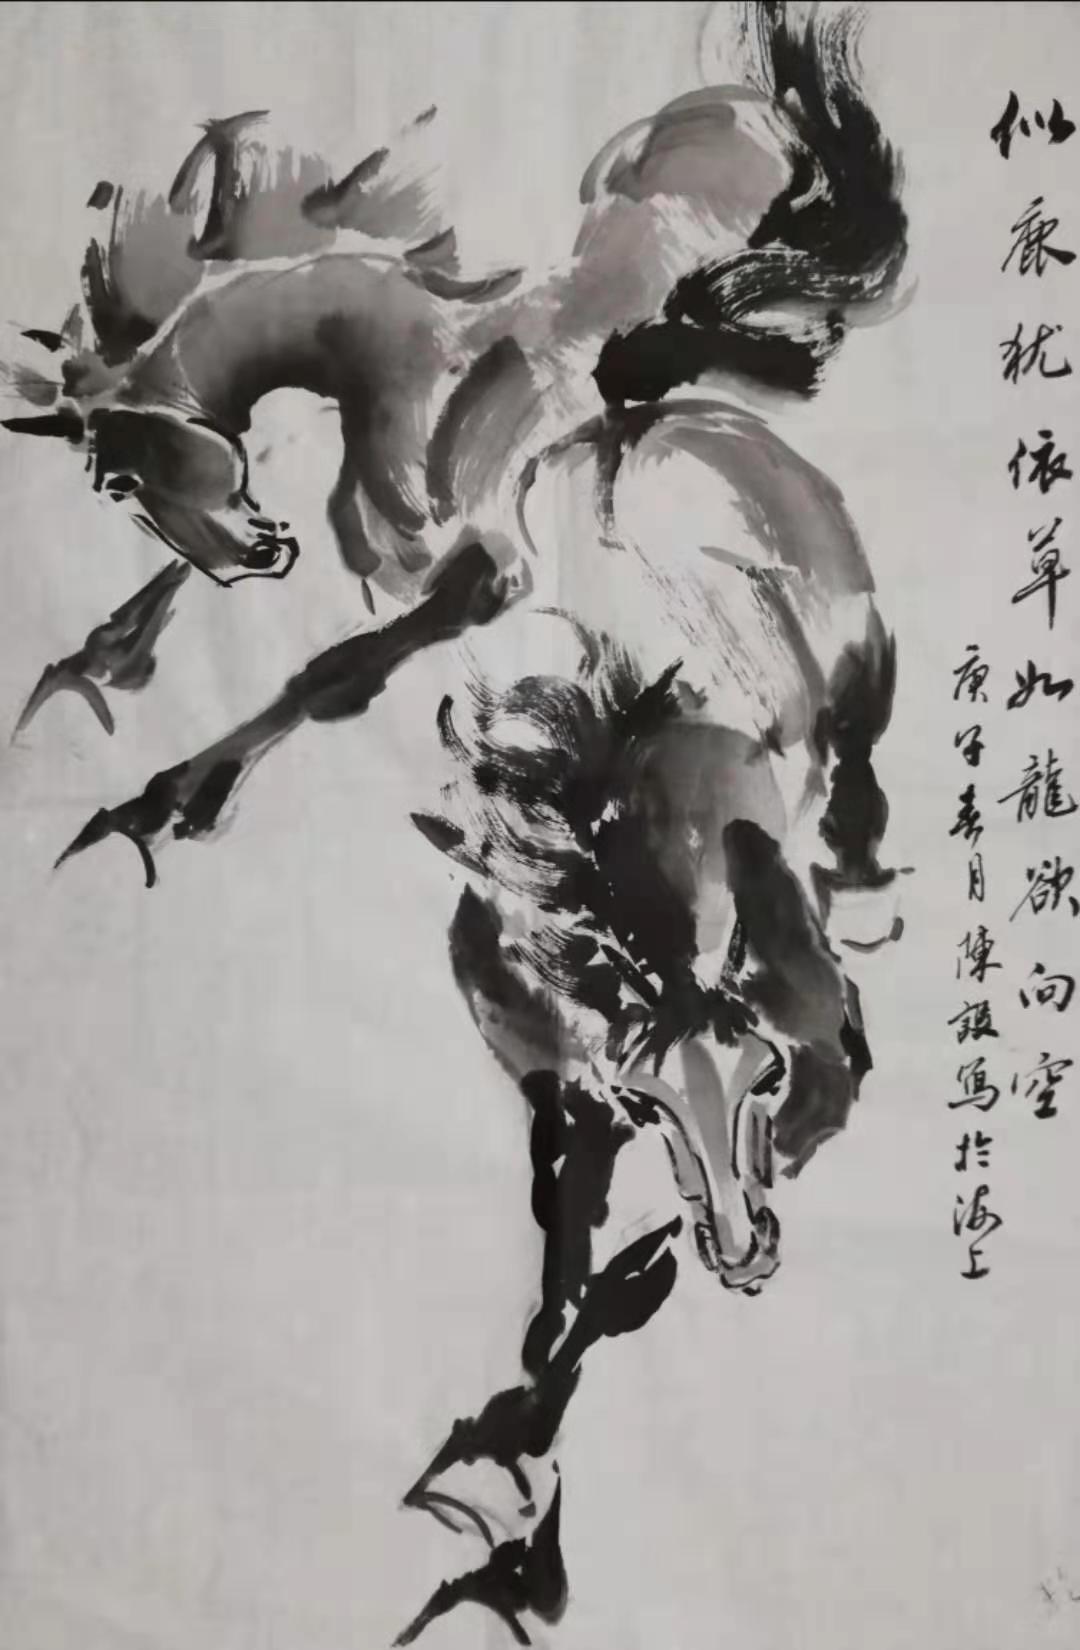 似鹿犹依草如龍欲向空
庚子春月陳設寫於海上